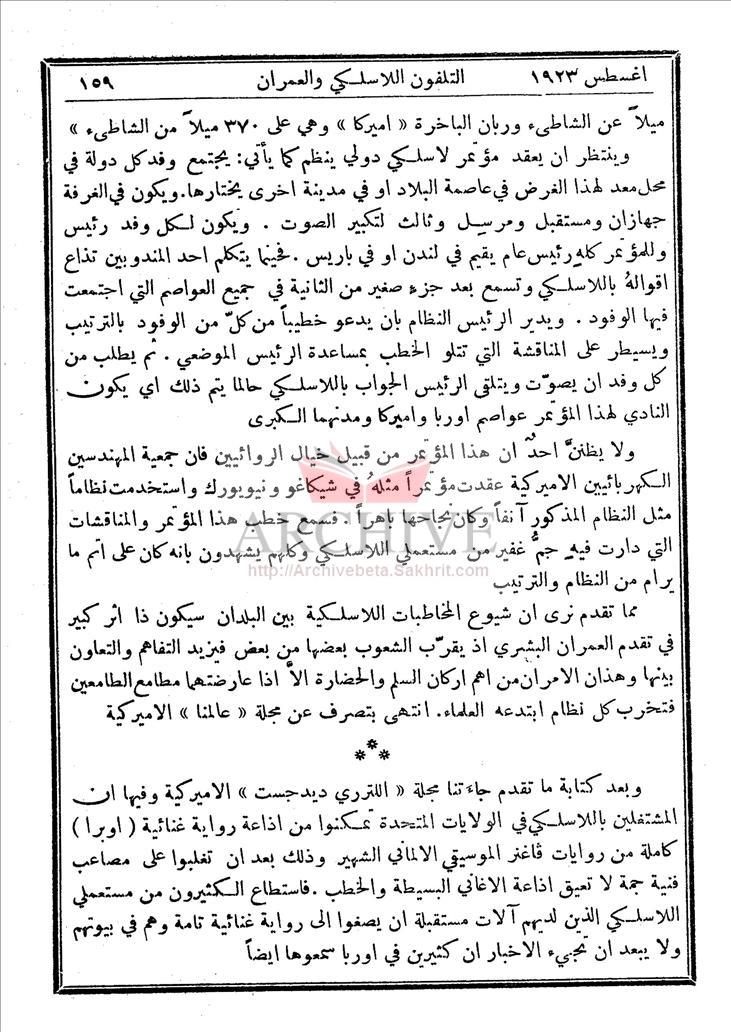 اغسطس ١٩٢٣ التلفون اللاسلكي والعمران ١٥٩
ميلاً عن الشاطىء وربان الباخرة « اميركا » وهي على ٣٧٠ ميلاً من الشاطىء »
وينتظر ان يعقد مؤتمر لاسلكي دولي ينظم كما يأتي: يجتمع وفدكل دولة في
محل معد لهذا الغرض في عاصمة البلاد او في مدينة اخرى يختارها. ويكون في الغرفة
جهازان ومستقبل ومرسل وثالث لتكبير الصوت . ويكون لكل وفد رئيس
وللمؤتمر كله رئيس عام يقيم في لندن او في باريس . فحينما يتكلم احد المندوبين تذاع
اقوالهُ باللاسلكي وتسمع بعد جزءٍ صغير من الثانية في جميع العواصم التي اجتمعت
فيها الوفود . ويدير الرئيس النظام بان يدعو خطيباً من كلّ من الوفود بالترتيب
ويسيطر على المناقشة التي تتلو الخطب بمساعدة الرئيس الموضعي . ثم يطلب من
كل وفد ان يصوّت ويتلقى الرئيس الجواب باللاسلكي حالما يتم ذلك اي يكون
النادي لهذا المؤتمر عواصم اوربا واميركا ومدنهما الكبرى
ولا يظننَّ احدٌ ان هذا المؤتمر من قبيل خيال الروائيين فان جمعية المهندسين
الكهربائيين الاميركية عقدت مؤتمراً مثلهُ في شيكاغو ونيويورك واستخدمت نظاماً
مثل النظام المذكور آنفاً وكان نجاحها باهراً . فسمع خطب هذا المؤتمر والمناقشات
التي دارت فيهِ جمٌّ غفير من مستعملي اللاسلكي وكلهم يشهدون بانه كان على اتم ما
يرام من النظام والترتيب
ARCHIVE
http://Archivebeta.Sakhrit.com
مما تقدم نرى ان شيوع المخاطبات اللاسلكية بين البلدان سيكون ذا اثر كبير
في تقدم العمران البشري اذ يقرّب الشعوب بعضها من بعض فيزيد التفاهم والتعاون
بينها وهذان الامران من اهم اركان السلم والحضارة الاَّ اذا عارضتهما مطامع الطامعين
فتخرب كل نظام ابتدعه العلماء. انتهى بتصرف عن مجلة « عالمنا » الاميركية
***
وبعد كتابة ما تقدم جاءتنا مجلة « اللترري ديدجست » الاميركية وفيها ان
المشتغلين باللاسلكي في الولايات المتحدة تمكنوا من اذاعة رواية غنائية ( اوبرا )
كاملة من روايات ڤاغنر الموسيقي الالماني الشهير وذلك بعد ان تغلبوا على مصاعب
فنية جمة لا تعيق اذاعة الاغاني البسيطة والخطب . فاستطاع الكثيرون من مستعملي
اللاسلكي الذين لديهم آلات مستقبلة ان يصغوا الى رواية غنائية تامة وهم في بيوتهم
ولا يبعد ان تجيء الاخبار ان كثيرين في اوربا سمعوها ايضاً